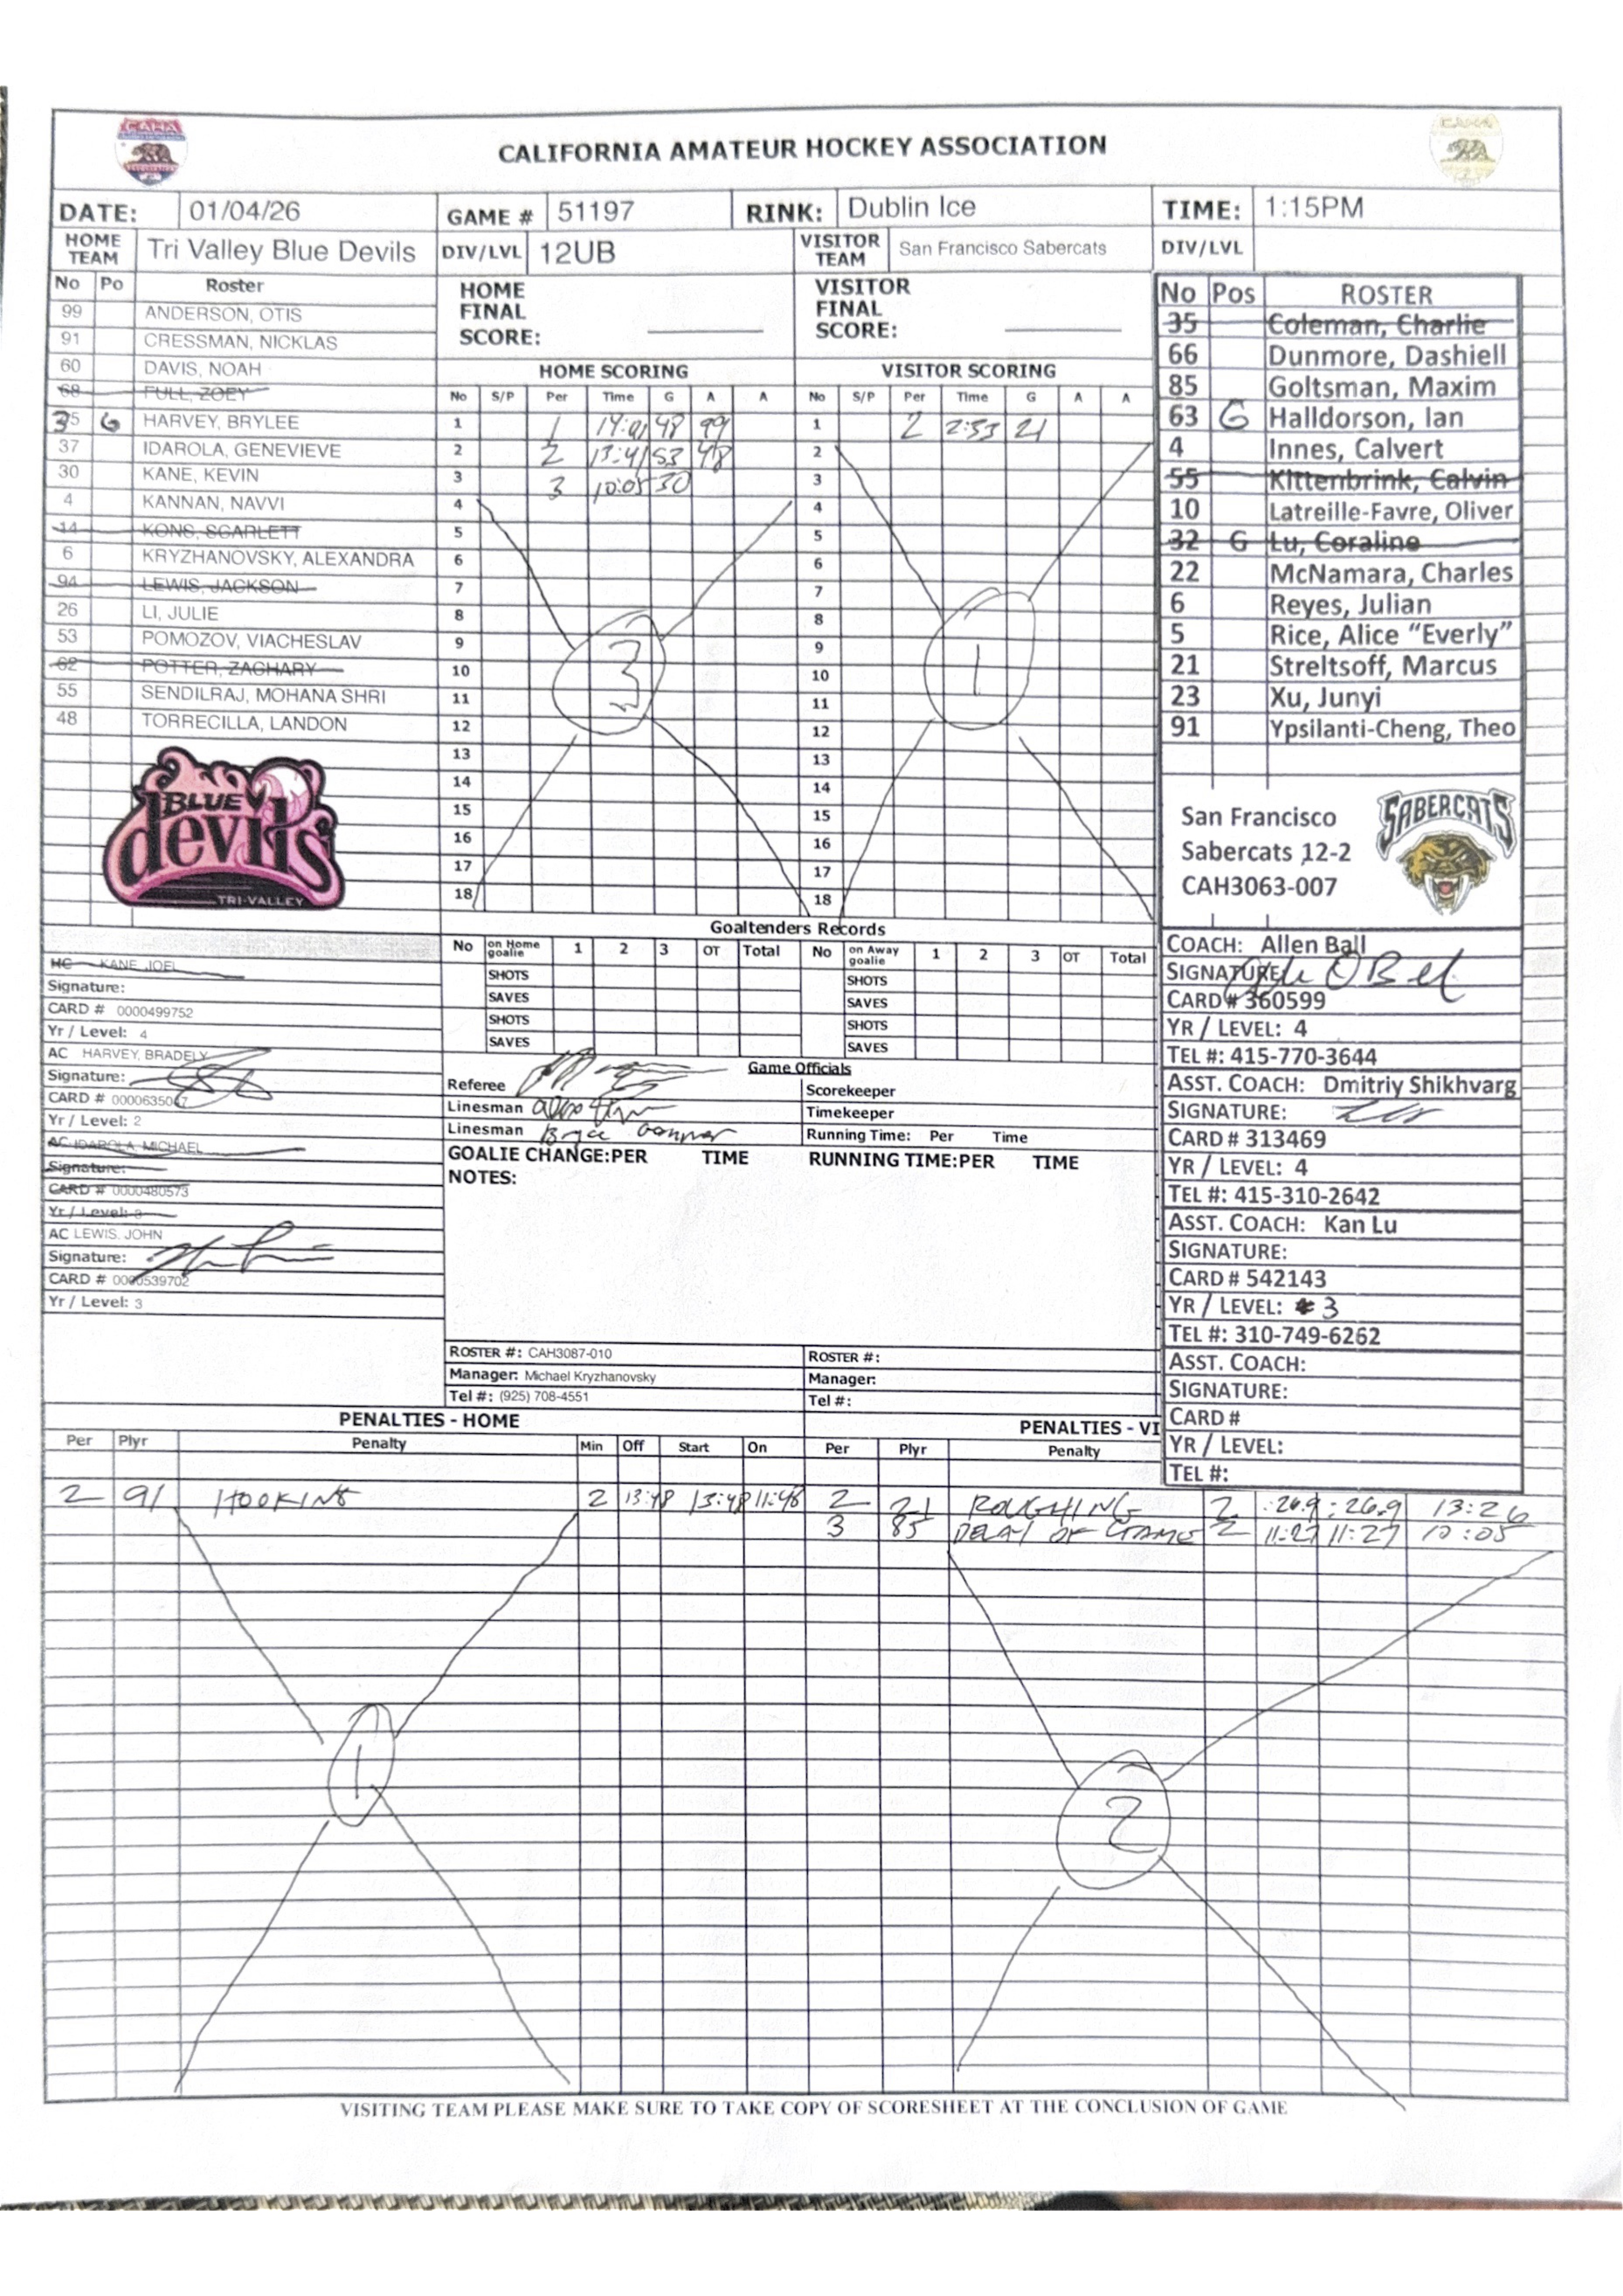 CAHA
CALIFORNIA AMATEUR HOCKEY ASSOCIATION
DATE: 01/04/26 GAME # 51197 RINK: Dublin Ice TIME: 1:15PM
HOME TEAM Tri Valley Blue Devils DIV/LVL 12UB VISITOR TEAM San Francisco Sabercats DIV/LVL
No Po Roster
99 ANDERSON, OTIS
91 CRESSMAN, NICKLAS
60 DAVIS, NOAH
68 FULL, ZOEY
35 G HARVEY, BRYLEE
37 IDAROLA, GENEVIEVE
30 KANE, KEVIN
4 KANNAN, NAVVI
14 KONS, SCARLETT
6 KRYZHANOVSKY, ALEXANDRA
94 LEWIS, JACKSON
26 LI, JULIE
53 POMOZOV, VIACHESLAV
62 POTTER, ZACHARY
55 SENDILRAJ, MOHANA SHRI
48 TORRECILLA, LANDON
BLUE
devils
TRI-VALLEY
HOME FINAL SCORE:
VISITOR FINAL SCORE:
HOME SCORING
No S/P Per Time G A A
1 1 14:01 48 99
2 2 13:41 53 48
3 3 10:05 30
4
5
6
7
8
9
10
11
12
13
14
15
16
17
18
3
VISITOR SCORING
No S/P Per Time G A A
1 2 2:53 21
2
3
4
5
6
7
8
9
10
11
12
13
14
15
16
17
18
1
No Pos ROSTER
35 Coleman, Charlie
66 Dunmore, Dashiell
85 Goltsman, Maxim
63 G Halldorson, Ian
4 Innes, Calvert
55 Kittenbrink, Calvin
10 Latreille-Favre, Oliver
32 G Lu, Coraline
22 McNamara, Charles
6 Reyes, Julian
5 Rice, Alice "Everly"
21 Streltsoff, Marcus
23 Xu, Junyi
91 Ypsilanti-Cheng, Theo
San Francisco
Sabercats 12-2
CAH3063-007
SABERCATS
Goaltenders Records
No on Home goalie 1 2 3 OT Total No on Away goalie 1 2 3 OT Total
SHOTS SHOTS
SAVES SAVES
SHOTS SHOTS
SAVES SAVES
HC KANE, JOEL
Signature:
CARD # 0000499752
Yr / Level: 4
AC HARVEY, BRADELY
Signature:
CARD # 0000635047
Yr / Level: 2
AC IDAROLA, MICHAEL
Signature:
CARD # 0000480573
Yr / Level: 3
AC LEWIS, JOHN
Signature:
CARD # 0000539702
Yr / Level: 3
Game Officials
Referee Scorekeeper
Linesman Timekeeper
Linesman Bryce Running Time: Per Time
GOALIE CHANGE:PER TIME RUNNING TIME:PER TIME
NOTES:
ROSTER #: CAH3087-010 ROSTER #:
Manager: Michael Kryzhanovsky Manager:
Tel #: (925) 708-4551 Tel #:
COACH: Allen Ball
SIGNATURE:
CARD # 360599
YR / LEVEL: 4
TEL #: 415-770-3644
ASST. COACH: Dmitriy Shikhvarg
SIGNATURE:
CARD # 313469
YR / LEVEL: 4
TEL #: 415-310-2642
ASST. COACH: Kan Lu
SIGNATURE:
CARD # 542143
YR / LEVEL: 3
TEL #: 310-749-6262
ASST. COACH:
SIGNATURE:
CARD #
YR / LEVEL:
TEL #:
PENALTIES - HOME
Per Plyr Penalty Min Off Start On
2 91 HOOKING 2 13:48 13:48 11:48
1
PENALTIES - VI
Per Plyr Penalty
2 21 ROUGHING 2 :26.9 :26.9 13:26
3 85 DELAY OF GAME 2 11:27 11:27 10:05
2
VISITING TEAM PLEASE MAKE SURE TO TAKE COPY OF SCORESHEET AT THE CONCLUSION OF GAME